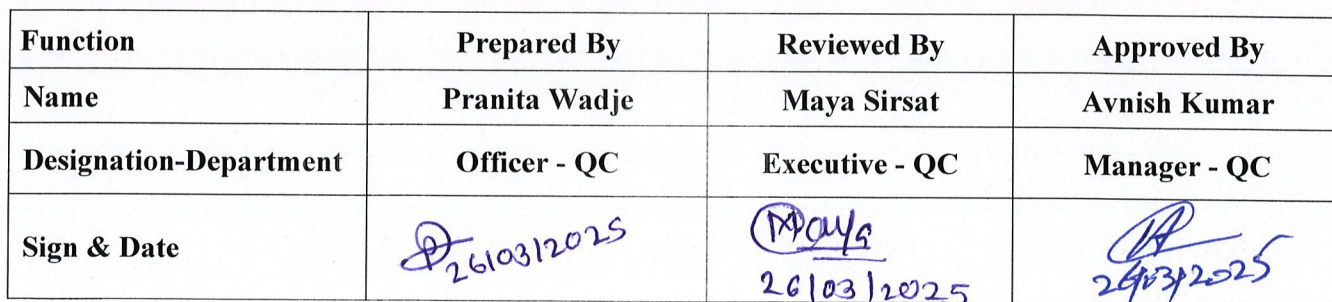 Function Prepared By Reviewed By Approved By
Name Pranita Wadje Maya Sirsat Avnish Kumar
Designation-Department Officer - QC Executive - QC Manager - QC
Sign & Date 26/03/2025 Maya 26/03/2025
26/03/2025